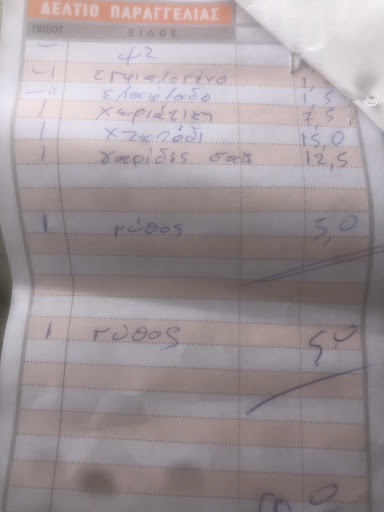 ΔΕΛΤΙΟ ΠΑΡΑΓΓΕΛΙΑΣ
ΠΟΣΟΤ ΕΙΔΟΣ
ψ2
1 εμφιαλομένο 1,
ελαιολαδο 1,5
1 χωριάτικη 7,5
1 χταπόδι 15,0
1 γαρίδες σαγ 12,5
1 γύθος 5,0
1 γύθος 50